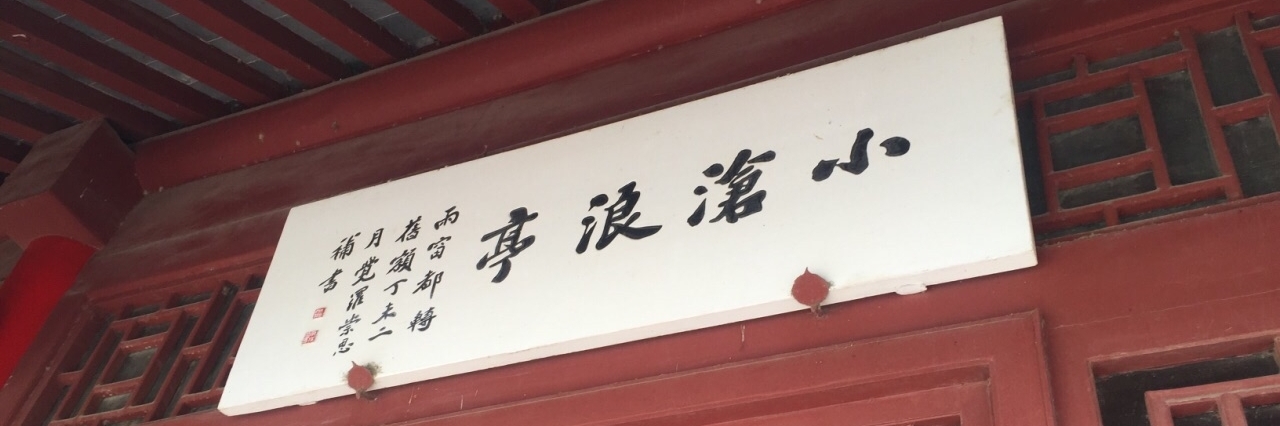 小滄浪亭
雨窗都轉
舊額丁未二
月覺羅崇恩
補書